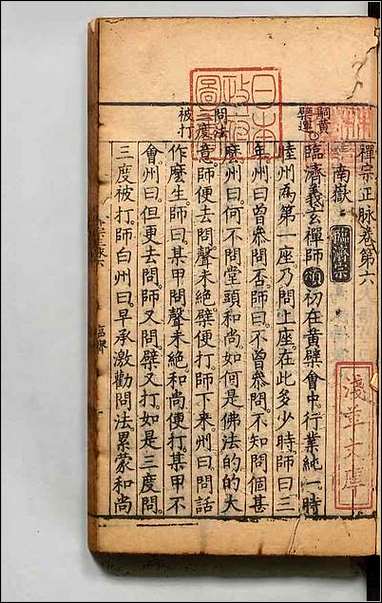 禪宗正脉卷第六
南嶽 臨濟宗
臨濟義玄禪師 初在黃檗會中行業純一時
睦州爲第一座乃問上座在此多少時師曰三
年州曰曾參問否師曰不曾參問不知問個甚
麽州曰何不問堂頭和尚如何是佛法的的大
意師便去問聲未絕檗便打師下來州曰問話
作麽生師曰某甲問聲未絕和尚便打某甲不
會州曰但更去問師又問檗又打如是三度問
三度被打師白州曰早承激勸問法累蒙和尚
問法
三度
被打
日本
政府
圖書
淺草文庫